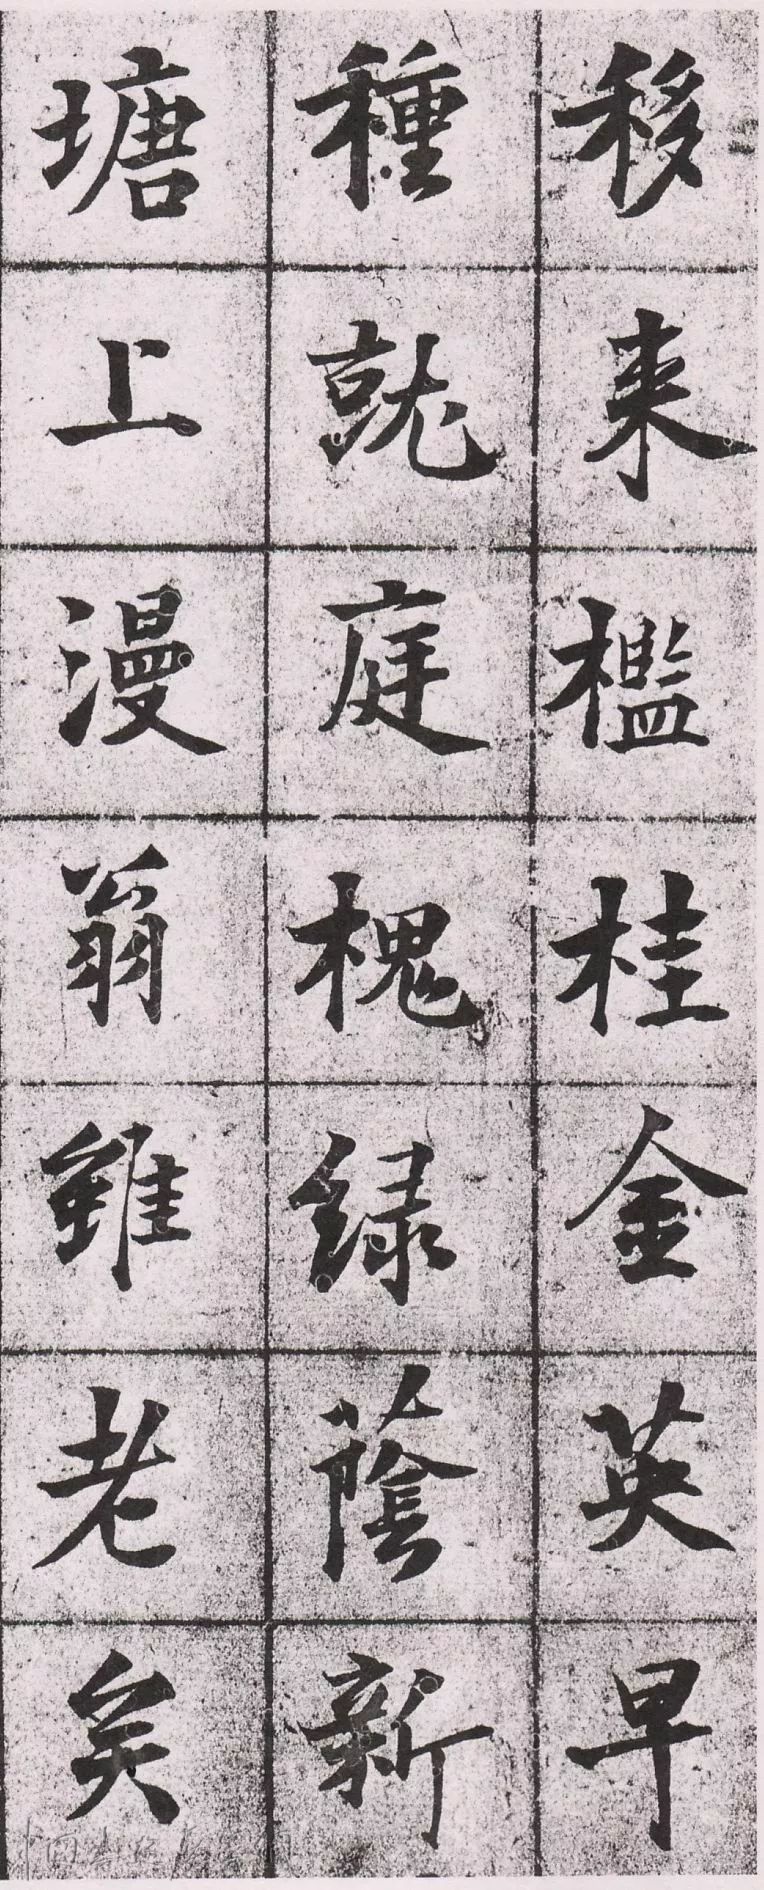 移来檻桂金英早
種就庭槐绿蔭新
塘上漫翁雖老矣